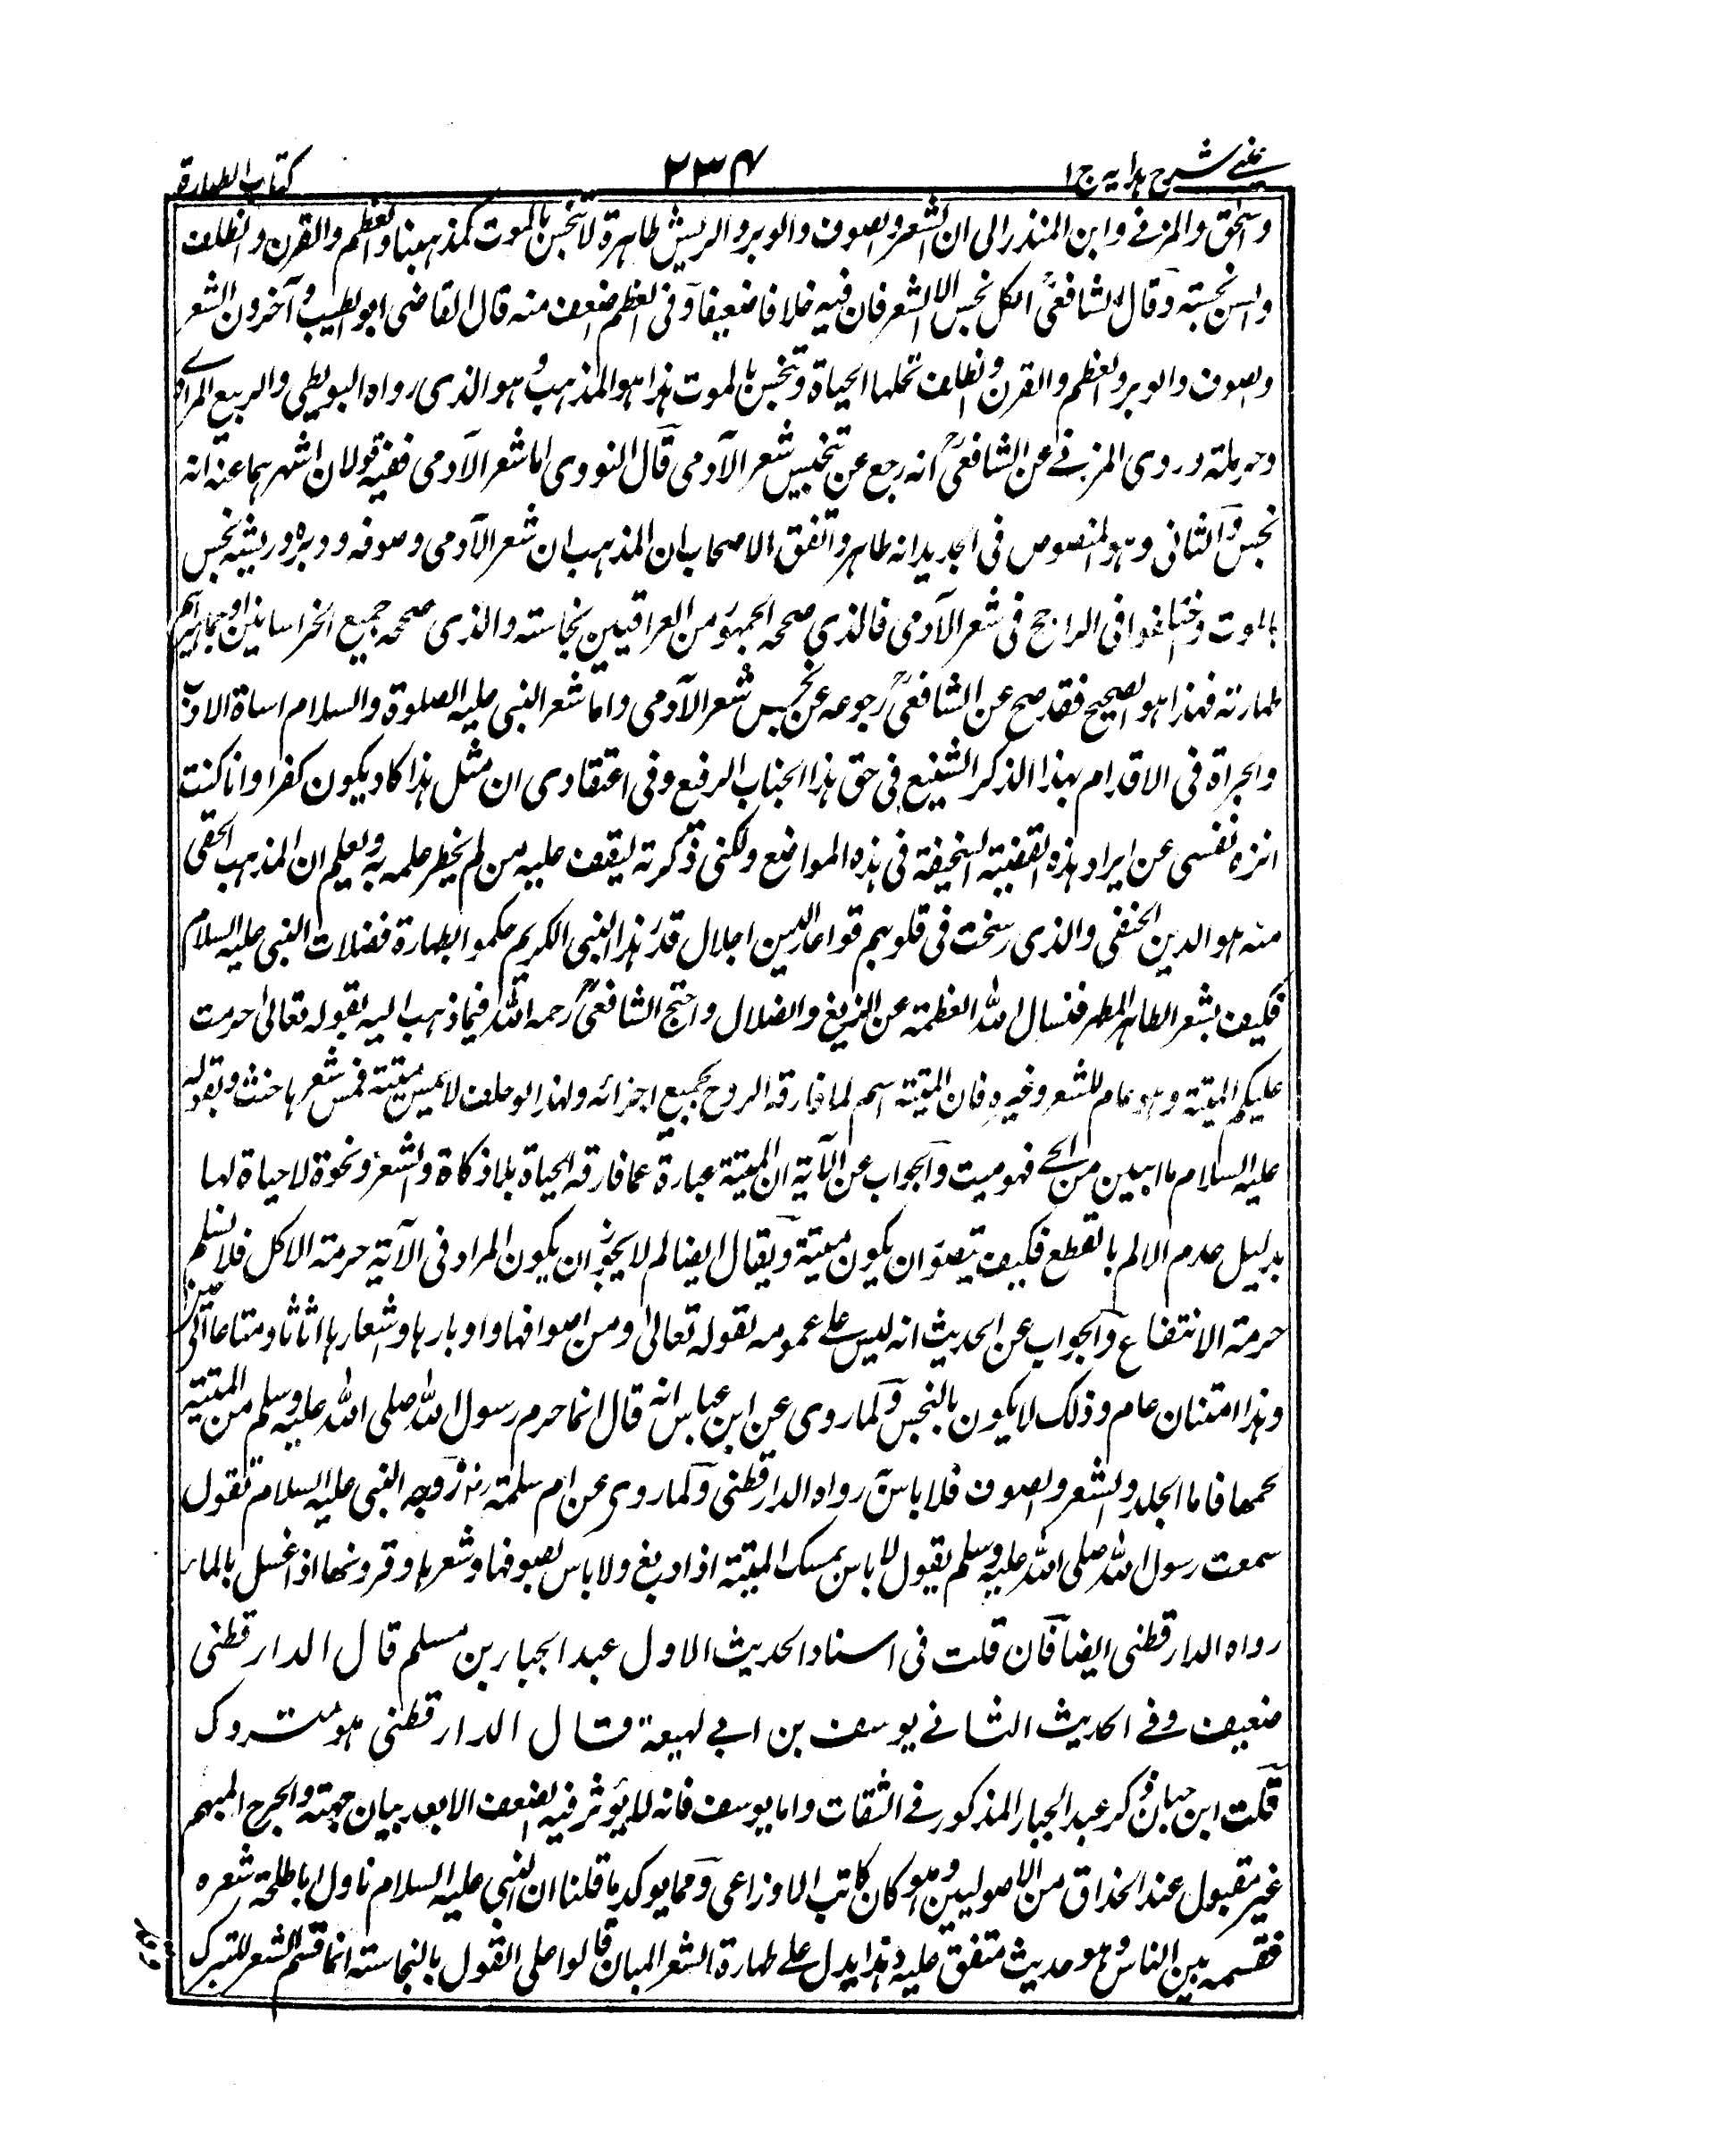 عینی شرح ہدایہ ج ۱
۲۳۴
کتاب الطہارة
واسحٰق والمزنی وابن المنذر الی ان الشعر والصوف والوبر والریش طاہرة لا تنجس بالموت کمذہبنا والعظم والقرن والظلف
والسن نجسة وقال الشافعیؒ الکل نجس الا الشعر فان فیہ خلافا ضعیفا وفی العظم اضعف منہ قال القاضی ابو الطیب وآخرون الشعر
والصوف والوبر والعظم والقرن والظلف تحلہا الحیاة وتنجس بالموت ہذا ہو المذہب وہو الذی رواہ البویطی والربیع المرادی
وحرملة وروی المزنی عن الشافعیؒ انہ رجع عن تنجیس شعر الآدمی قال النووی اما شعر الآدمی ففیہ قولان اشہرہما عنہ انہ
نجس والثانی وہو المنصوص فی الجدید انہ طاہر واتفق الاصحاب ان المذہب ان شعر الآدمی وصوفہ ووبرہ وریشہ نجس
بالموت واختلفوا فی الراجح فی شعر الآدمی فالذی صححہ الجمہور من العراقیین نجاستہ والذی صححہ جمیع الخراسانیین او جماہیرہم
طہارتہ فہذا ہو الصحیح فقد صح عن الشافعیؒ رجوعہ عن تنجیس شعر الآدمی واما شعر النبی علیہ الصلوة والسلام اساة الادب
والجراة فی الاقدام بہذا الذکر الشنیع فی حق ہذا الجناب الرفیع وفی اعتقادی ان مثل ہذا کاد یکون کفرا وانا کنت
انزہ نفسی عن ایراد ہذہ القضیة السخیفة فی ہذہ المواضع ولکنی ذکرتہ لیقف علیہ من لم یخطر علمہ بہ ویعلم ان المذہب الحقی
منہ ہو الدین الحنفی والذی رسخت فی قلوبہم قواعد الدین اجلال قدر ہذا النبی الکریم حکموا بطہارة فضلات النبی علیہ السلام
فکیف بشعر الطاہر المطہر فنسال اللہ العظمة عن الزیغ والضلال واحتج الشافعیؒ رحمہ اللہ فیما ذہب الیہ بقولہ تعالیٰ حرمت
علیکم المیتة وہو عام للشعر وغیرہ فان المیتة اسم لما فارقہ الروح بجمیع اجزائہ ولہذا لو حلف لا یمس میتة فمس شعرہا حنث وبقولہ
علیہ السلام ما ابین من الحے فہو میت والجواب عن الآیة ان المیتة عبارة عما فارقہ الحیاة بلا ذکاة والشعر ونحوہ لا حیاة لہا
بدلیل عدم الالم بالقطع فکیف یتصور ان یکون میتة ویقال ایضا لم لا یجوز ان یکون المراد فی الآیة حرمة الاکل فلا نسلم
حرمة الانتفاع والجواب عن الحدیث انہ لیس علے عمومہ لقولہ تعالیٰ ومن اصوافہا واوبارہا واشعارہا اثاثا ومتاعا الی حین
وہذا امتنان عام وذلک لا یکون بالنجس ولما روی عن ابن عباس انہ قال انما حرم رسول اللہ صلی اللہ علیہ وسلم من المیتة
لحمہا فاما الجلد والشعر والصوف فلا باس رواہ الدارقطنی ولما روی عن ام سلمة رضؓ زوجہ النبی علیہ السلام تقول
سمعت رسول اللہ صلی اللہ علیہ وسلم یقول لا باس بمسک المیتة اذا دبغ ولا باس بصوفہا وشعرہا وقرونہا اذا غسل بالماء
رواہ الدارقطنی ایضا فان قلت فی اسناد الحدیث الاول عبد الجبار بن مسلم قال الدارقطنی
ضعیف وفے الحدیث الثانے یوسف بن ابی لہیعة قال الدارقطنی ہو متروک
قلت ابن حبان ذکر عبد الجبار المذکور فے الثقات واما یوسف فانہ لا یؤثر فیہ الضعف الا بعد بیان جہتہ والجرح المبہم
غیر مقبول عند الحذاق من الاصولیین وہو کان کاتب الاوزاعی ومما یوکد ما قلنا ان النبی علیہ السلام ناول ابا طلحة شعرہ
فقسمہ بین الناس وہو حدیث متفق علیہ وہذا یدل علے طہارة الشعر المبان قالوا علی القول بالنجاستہ انما قسم الشعر للتبرک